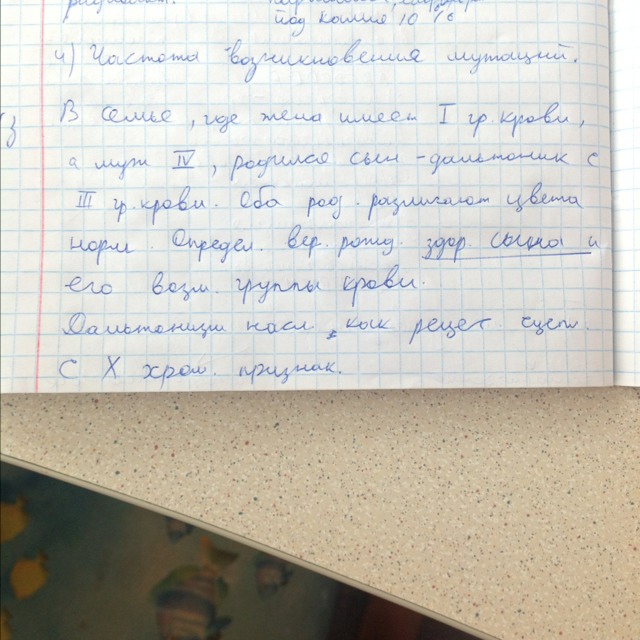 под камню 10
4) Частота возникновения мутаций.
В семье, где жена имеет I гр. крови,
а муж IV, родился сын - дальтоник с
III гр. крови. Оба род. различают цвета
норм. Определ. вер. рожд. здор. сына и
его возм. группы крови.
Дальтонизм насл. как рецес. сцепл.
с X хром. признак.